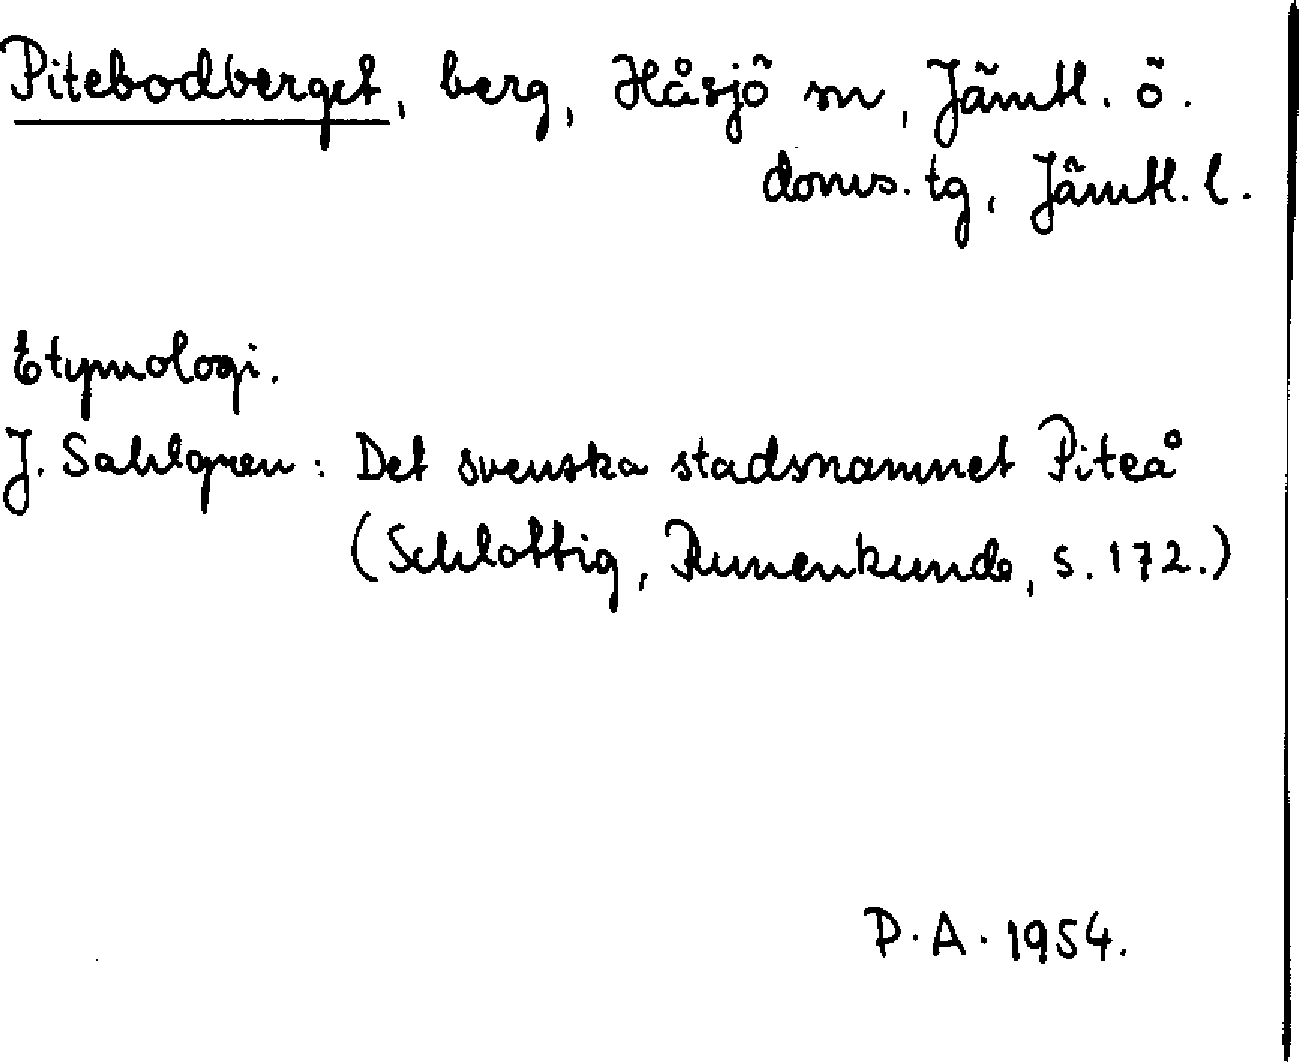 Pitebodberget, berg, Håsjö sn, Jämtl. ö.
doms. tg, Jämtl. l.
Etymologi.
J. Sahlgren: Det svenska stadsnamnet Piteå
(Schlottig, Runenkunde, s. 172.)
P. A. 1954.